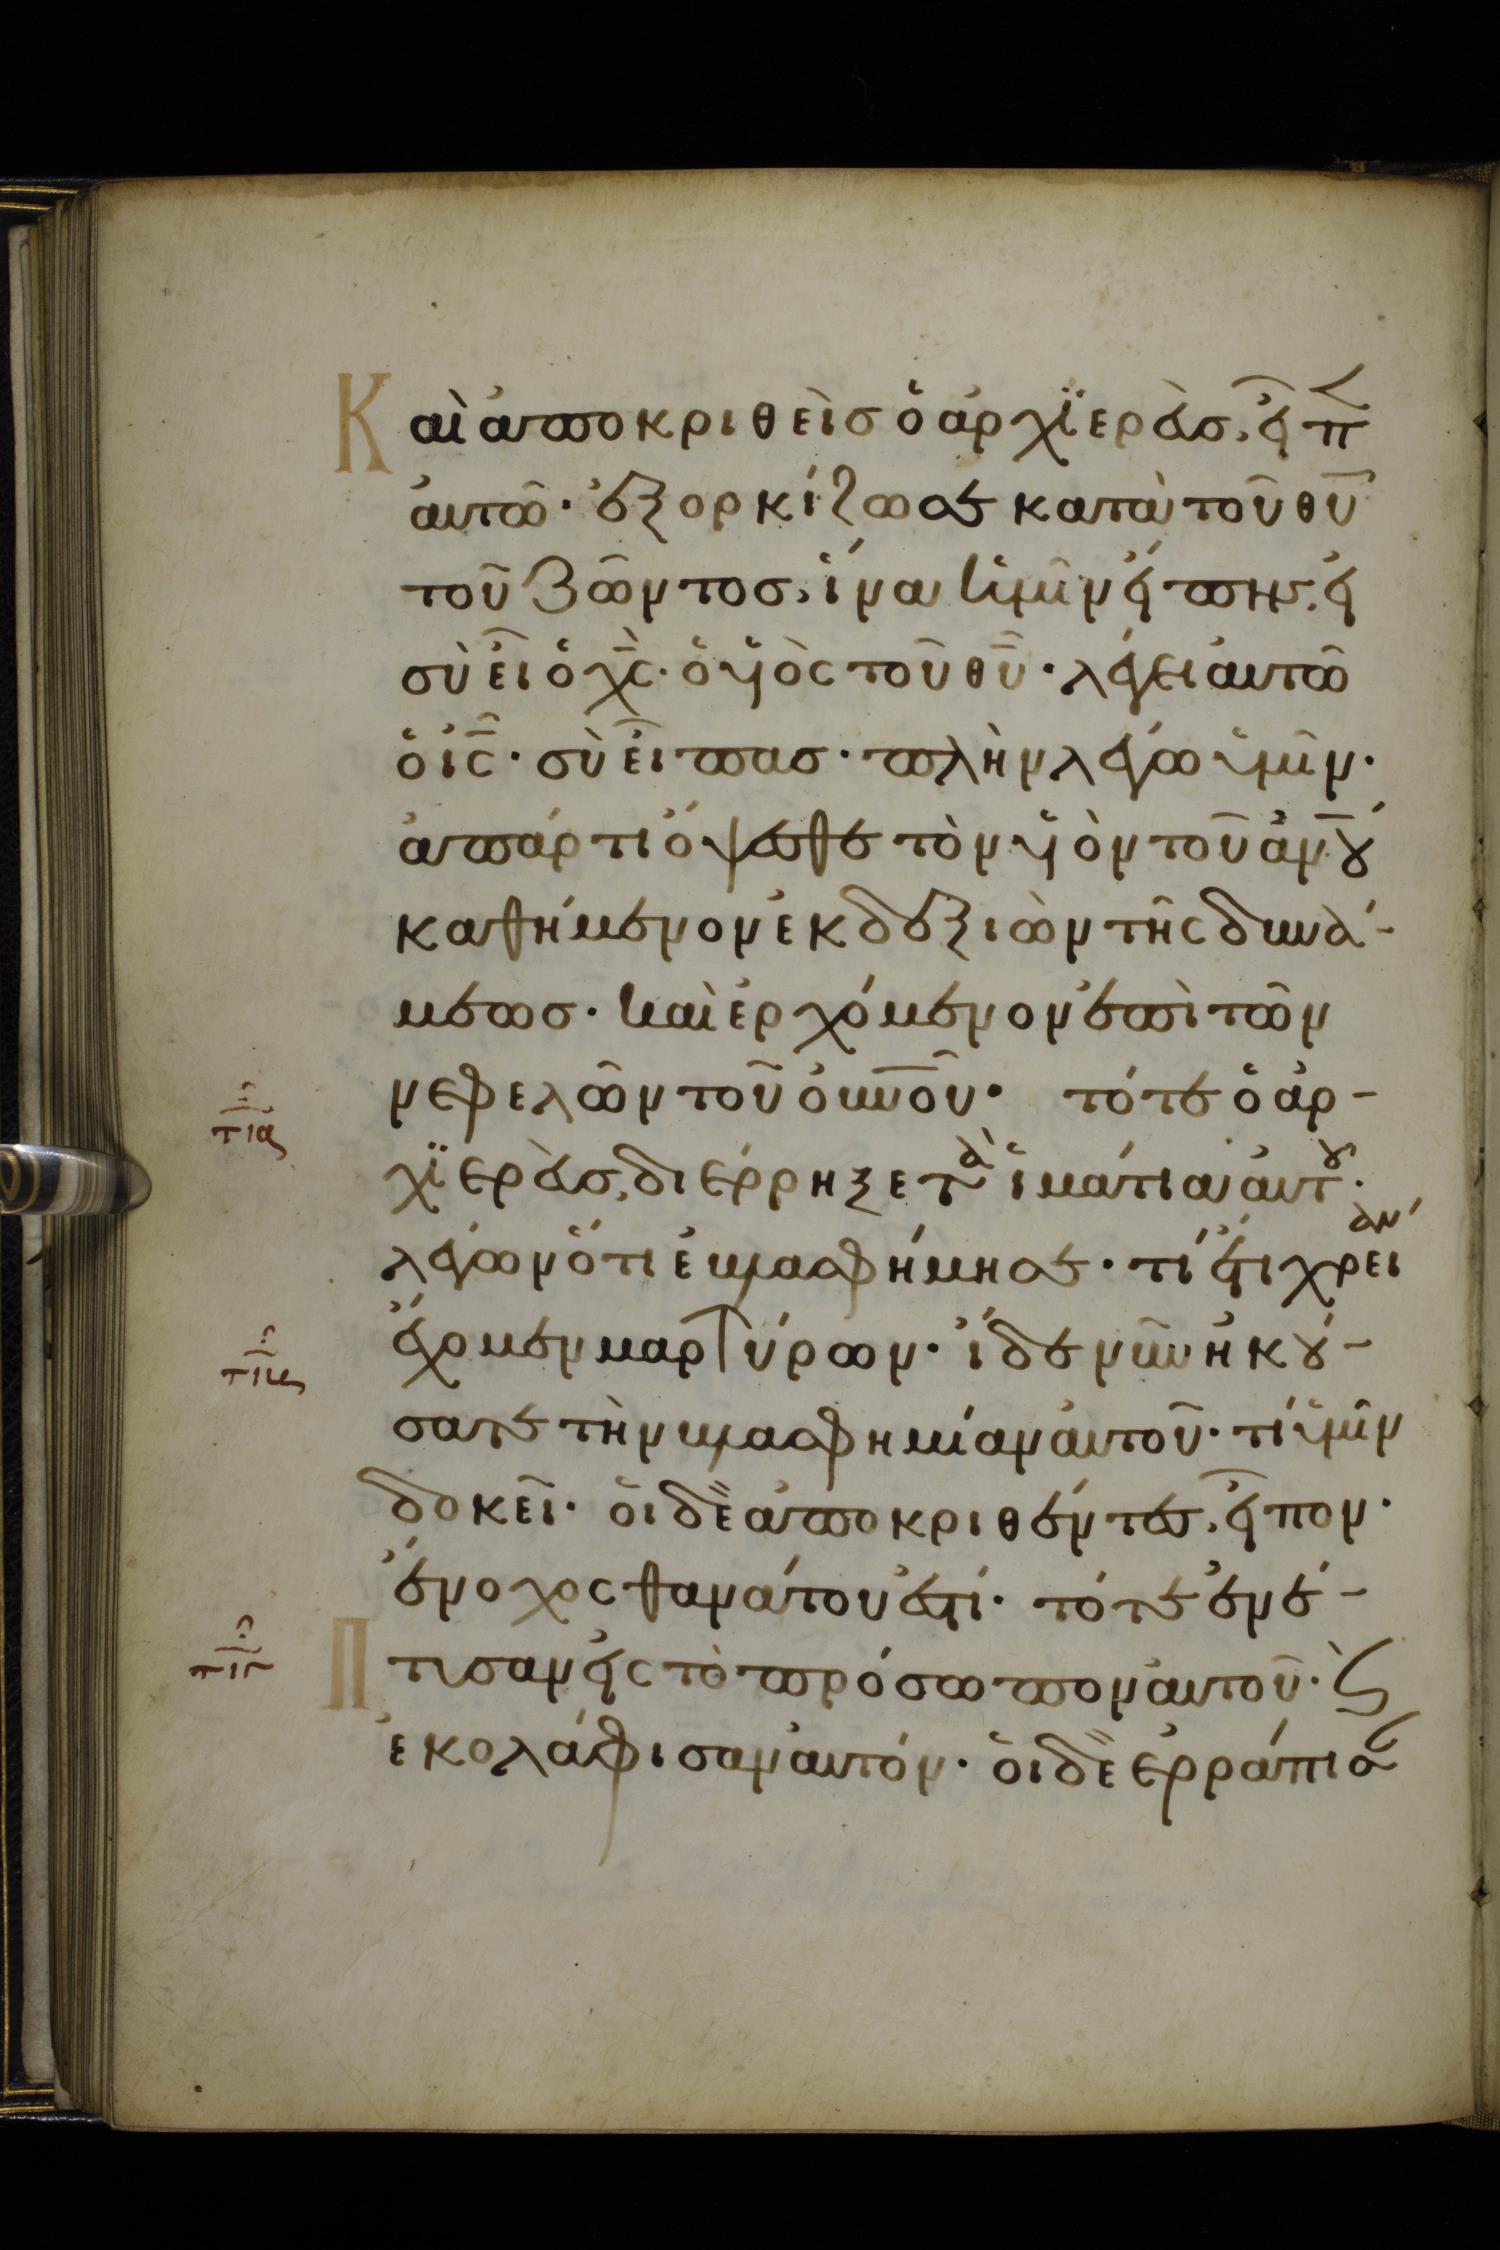 Καὶ ἀποκριθεὶσ ὁ ἀρχϊερεὺσ, εἶπ
αυτῶ· ἐξορκίζω σε κατὰ τοῦ θῦ
τοῦ ζῶντοσ, ἵνα ἡμῖν εἴπησ, εἰ
σὺ εἶ ὁ χς· ὁ ὑϊὸς τοῦ θῦ· λέγει αυτῶ
ὁ ις· σὺ εἶπασ· πλὴν λέγω ὑμῖν·
ἀπάρτι ὄψεσθε τὸν ὑϊὸν τοῦ ἀνου
καθήμενον ἐκ δεξιῶν τῆς δυνά-
μεωσ· καὶ ἐρχόμενον ἐπὶ τῶν
νεφελῶν τοῦ οὐνοῦ· τότε ὁ ἀρ-
τια
χϊερεὺσ, διέρρηξε τὰ ἱμάτια αὐτου·
λέγων ὅτι ἐβλασφήμησε· τί ἔτι χρείαν
ἔχομεν μαρτύρων· ἴδε νῦν ἠκού-
τιβ
σατε τὴν βλασφημίαν αὐτοῦ· τί ὑμῖν
δοκεῖ· οἱ δὲ ἀποκριθέντεσ, εἶπον·
ἔνοχος θανάτου ἐστί· τότε ἐνέ-
πτυσαν εἰς τὸ πρόσωπον αὐτοῦ· ϗ
τιγ
ἐκολάφισαν αὐτόν· οἱ δὲ ἐρράπισα